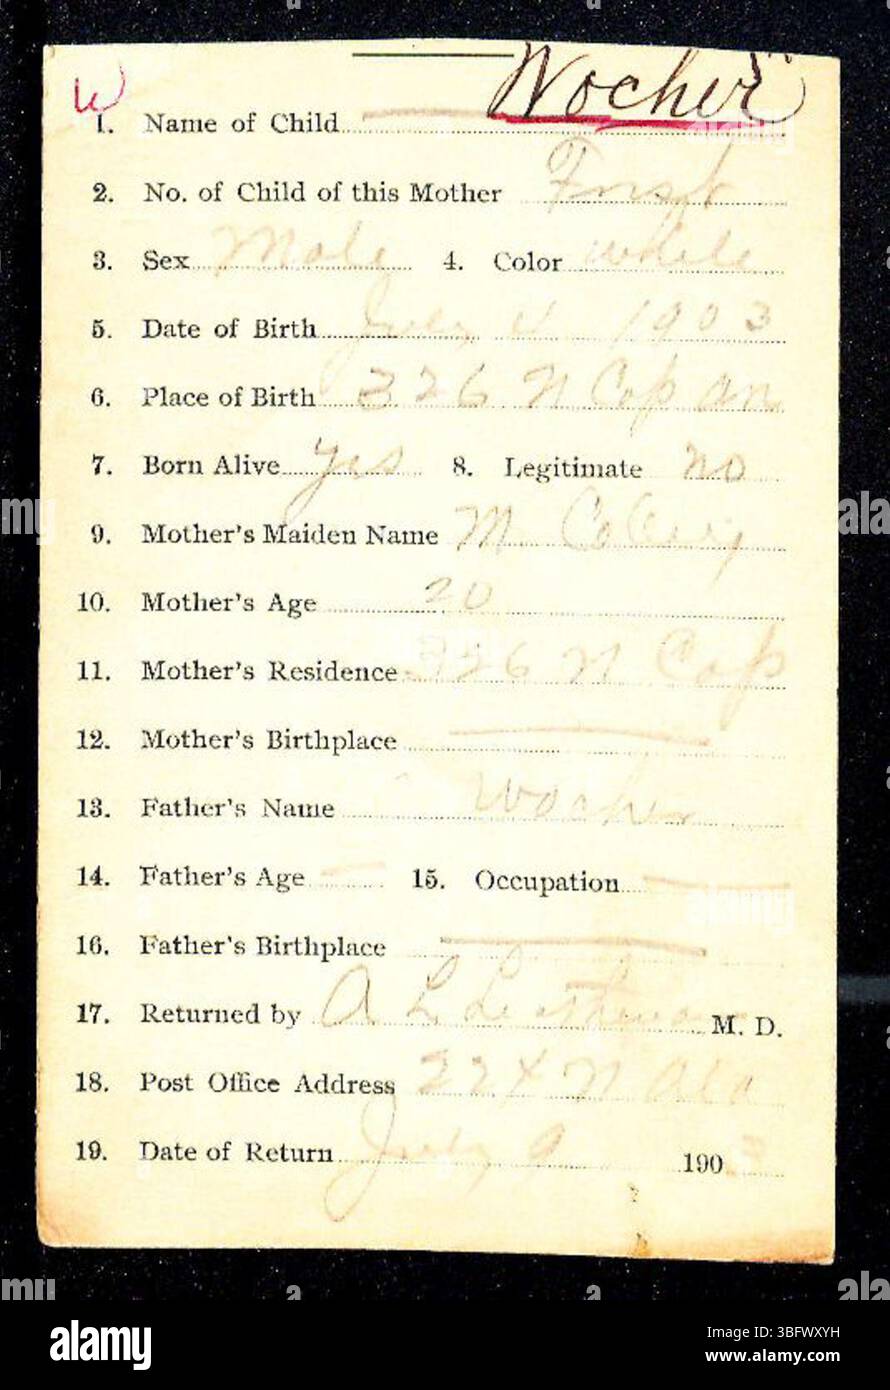 W
Wocher
1. Name of Child
2. No. of Child of this Mother First
3. Sex Male 4. Color White
5. Date of Birth July 4 1903
6. Place of Birth 326 N Cap an
7. Born Alive yes 8. Legitimate no
9. Mother's Maiden Name M
10. Mother's Age 20
11. Mother's Residence 326 N Cap
12. Mother's Birthplace
13. Father's Name Wocher
14. Father's Age 15. Occupation
16. Father's Birthplace
17. Returned by A L M. D.
18. Post Office Address 224 N Ala
19. Date of Return July 9 1903
alamy
Image ID: 3BFWXYH
www.alamy.com